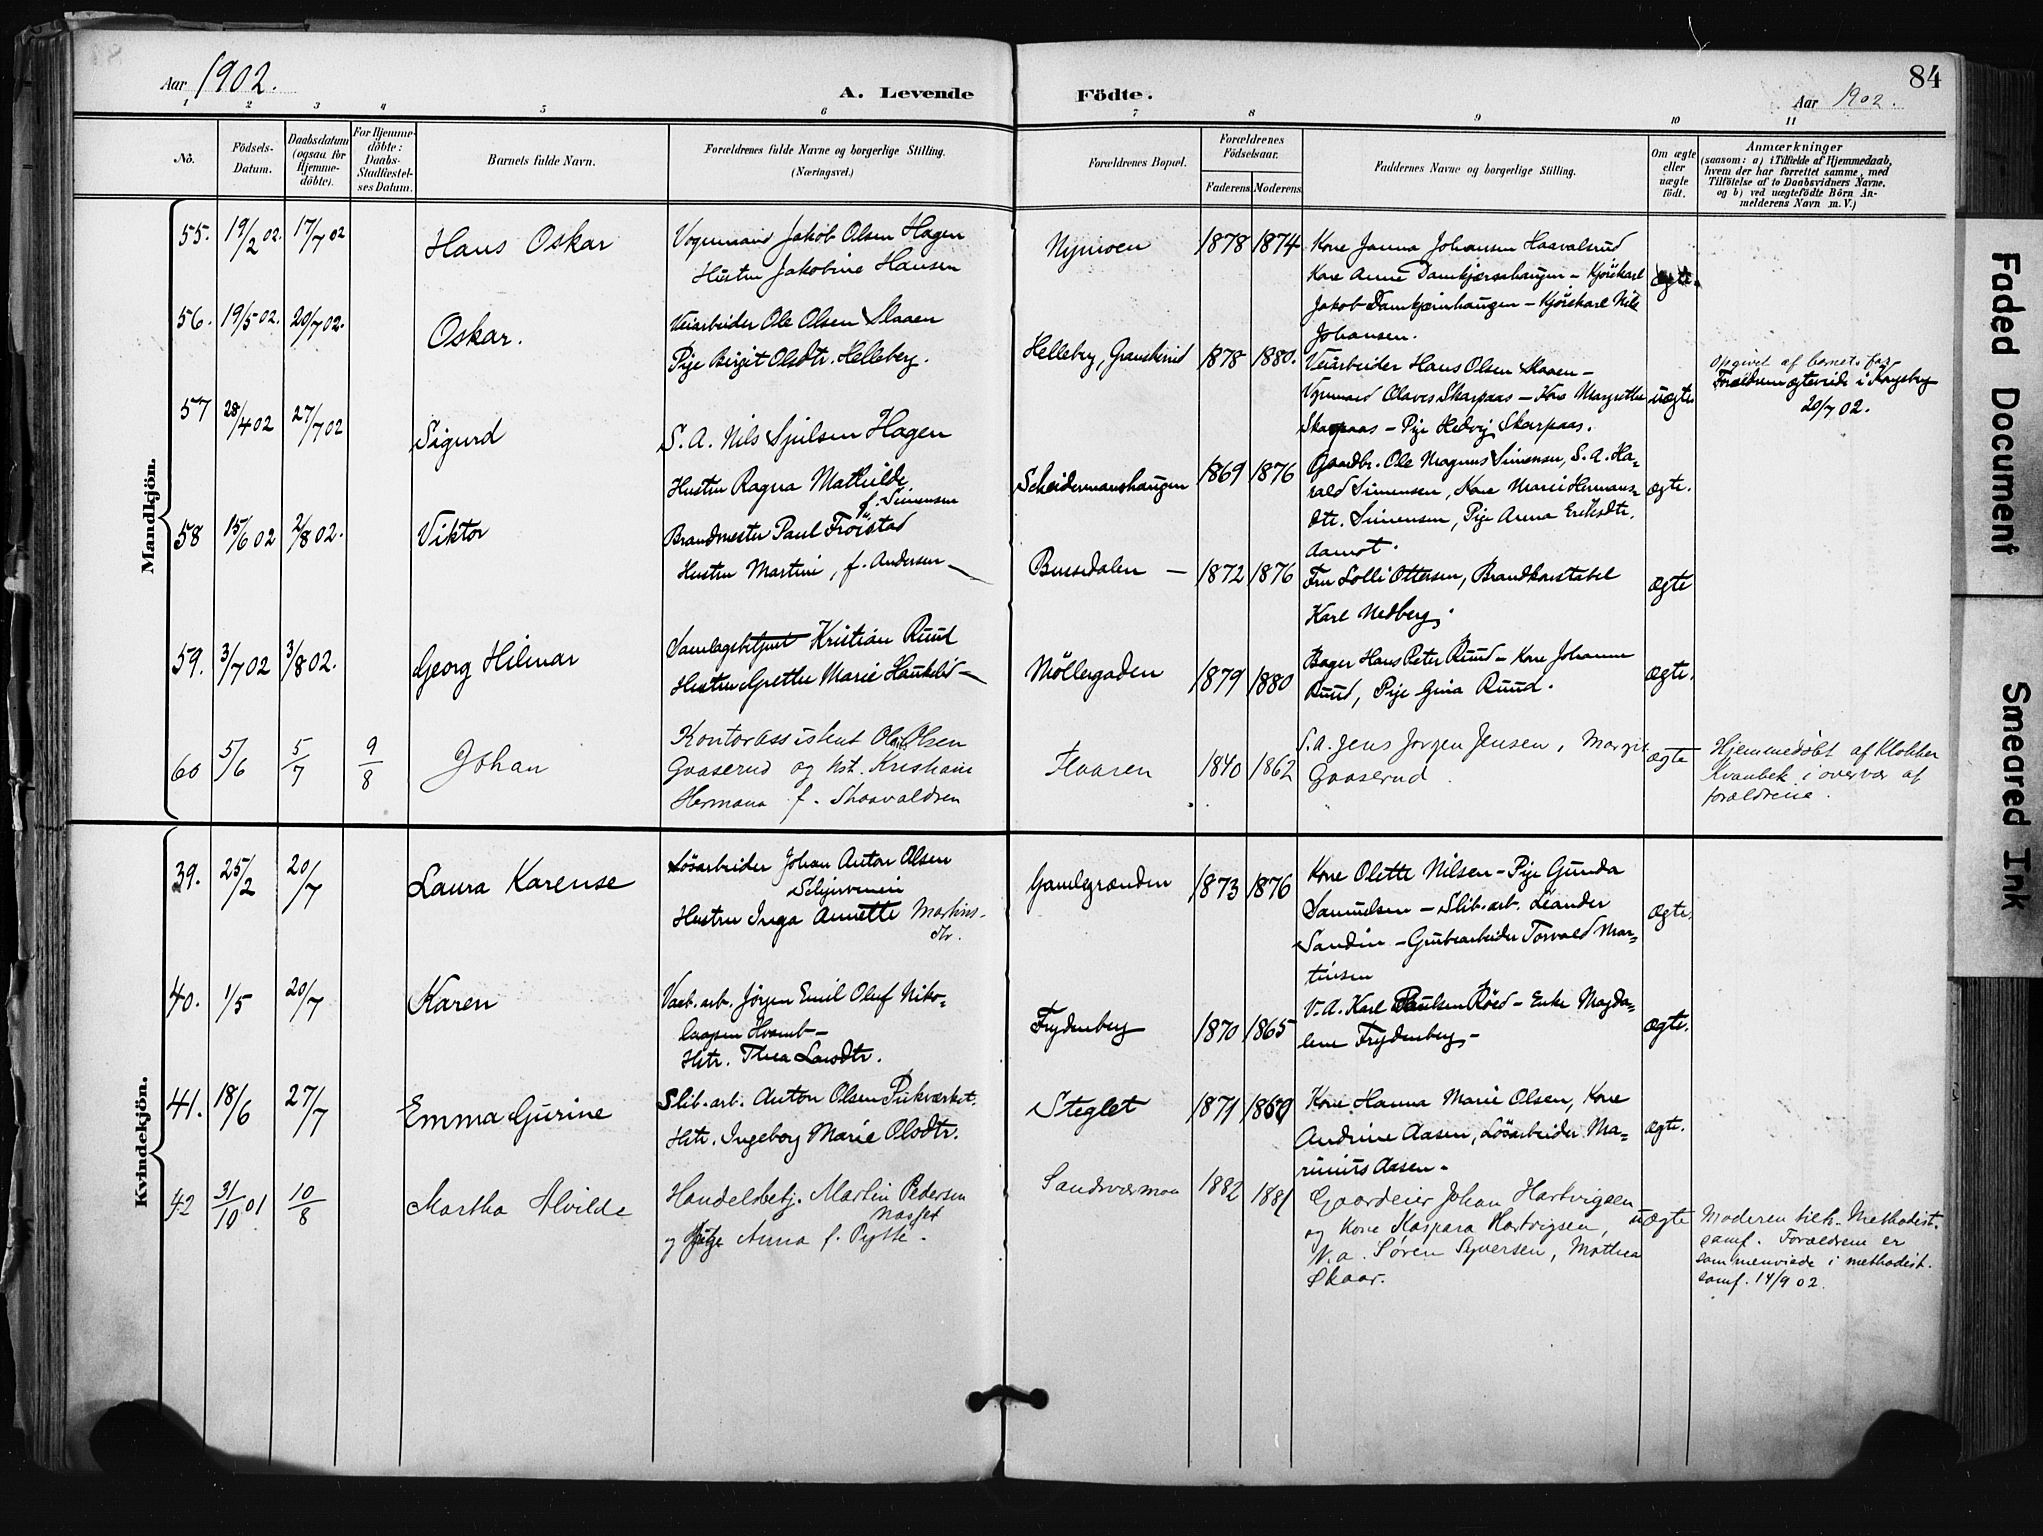 Aar 1902.
A. Levende Födte.
Aar 1902.
84
1 2 3 4 5 6 7 8 9 10 11
No.
Födsels-Datum.
Daabsdatum (ogsaa for Hjemmedöbte).
For Hjemmedöbte: Daabs-Stadfæstelses Datum.
Barnets fulde Navn.
Forældrenes fulde Navne og borgerlige Stilling. (Næringsvei.)
Forældrenes Bopæl.
Forældrenes Födselsaar.
Faderens. Moderens.
Faddernes Navne og borgerlige Stilling.
Om ægte eller uægte födt.
Anmærkninger
(saasom: a) i Tilfælde af Hjemmedaab,
hvem der har forrettet samme, med
Tilföielse af to Daabsvidners Navne,
og b) ved uægtefödte Börn An-
melderens Navn m. V.)
Mandkjön.
55. 19/2 02. 17/7 02 Hans Oskar
Vognmand Jakob Olsen Hagen
Hustru Jakobine Hansen
Nymoen 1878 1874
Kone Janna Johansen Haavalsrud
Kone Anne Damkjærnhaugen – Kjörekarl
Jakob Damkjærnhaugen – Kjörekarl Nils
Johansen.
ægte.
56. 19/5 02. 20/7 02. Oskar.
Veiarbeider Ole Olsen Slaaen
Pige Birgit Olsdtr. Helleberg.
Helleberg, Gransherred 1878 1880.
Veiarbeider Hans Olsen Slaaen –
Vognmand Olaves Skarpaas – Kone Margrethe
Skarpaas – Pige Hedvig Skarpaas.
uægte
Opgivet af barnets far
Forældrene ægteviede i Kongsberg
20/7 02.
57 28/4 02 27/7 02 Sigurd
S. A. Nils Sjulsen Hagen
Hustru Ragna Mathilde
f. Simensen
Scheidermanshaugen 1869 1876
Gaardbr. Ole Magnus Simensen, S. A. Ha-
rald Simensen, Kone Marie Hermans-
dtr. Simensen, Pige Anna Eriksdtr.
Aamot.
ægte.
58 15/6 02 2/8 02. Viktor
Brandmester Paul Fröistad
Hustru Martine, f. Andersen –
Bussedalen – 1872 1876
Fru Lolli Ottersen, Brandkonstabel
Karl Nedberg.
ægte
59. 3/7 02 3/8 02. Georg Hilmar
Samlagsbetjent Kristian Ruud
Hustru Grethe Marie Haukelid –
Möllergaden 1879 1880
Bager Hans Peter Ruud – Kone Johanne
Ruud, Pige Gina Ruud.
ægte.
60 5/6 5/7 9/8 Johan
Kontorassistent Olaf Olsen
Gaaserud og hst. Kristiane
Hermana f. Skaavaldsen
Flaaren 1840 1862
S. A. Jens Jorgen Jensen, Margit
Gaaserud.
ægte
Hjemmedøbt af Klokker
Kvanbek i overvær af
forældrene.
Kvindekjön.
39. 25/2 20/7 Laura Karense
Lösarbeider Johan Anton Olsen
Skjerveneie
Hustru Inga Annette Martins-
dtr.
Gamlegrænden 1873 1876
Kone Olette Nilsen – Pige Gunda
Samuelsen – Slib.arb. Leander
Sandin – Grubearbeider Torvald Mar-
tinsen
ægte.
40. 1/5 20/7 Karen
Vaab. arb. Jörgen Emil Oluf Niko-
laysen Hvamb –
Hstr. Thea Larsdtr.
Frydenberg 1870 1865
V. A. Karl Paulsen Röed – Enke Magda-
lene Frydenberg –
ægte.
41. 18/6 27/7 Emma Gurine
Slib. arb. Anton Olsen Pukværket.
Hstr. Ingeborg Marie Olsdtr.
Steglet 1871 1869
Kone Hanna Marie Olsen, Kone
Andrine Aasen, Lösarbeider Ma-
rinius Aasen.
ægte.
42 31/10 01 10/8 Martha Alvilde
Handelsbetj. Martin Pedersen
Næsset
og Pige Anna f. Pytte.
Sandsværmoen 1882 1881
Gaardeier Johan Hartvigsen
og Kone Kaspara Hartvigsen,
V. a. Søren Syversen, Mathea
Skaar.
uægte
Moderen tilh. Methodist.
samf. Forældrene er
sammenviede i methodist.
samf. 14/9 02.
Faded Document
Smeared Ink